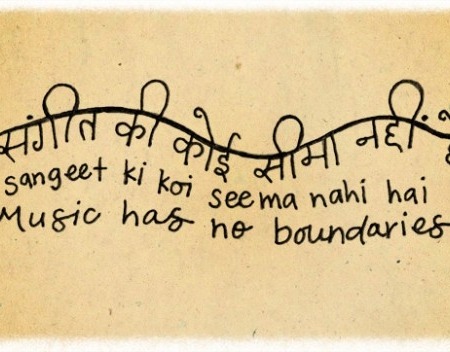 संगीत की कोई सीमा नहीं है
sangeet ki koi seema nahi hai
Music has no boundaries